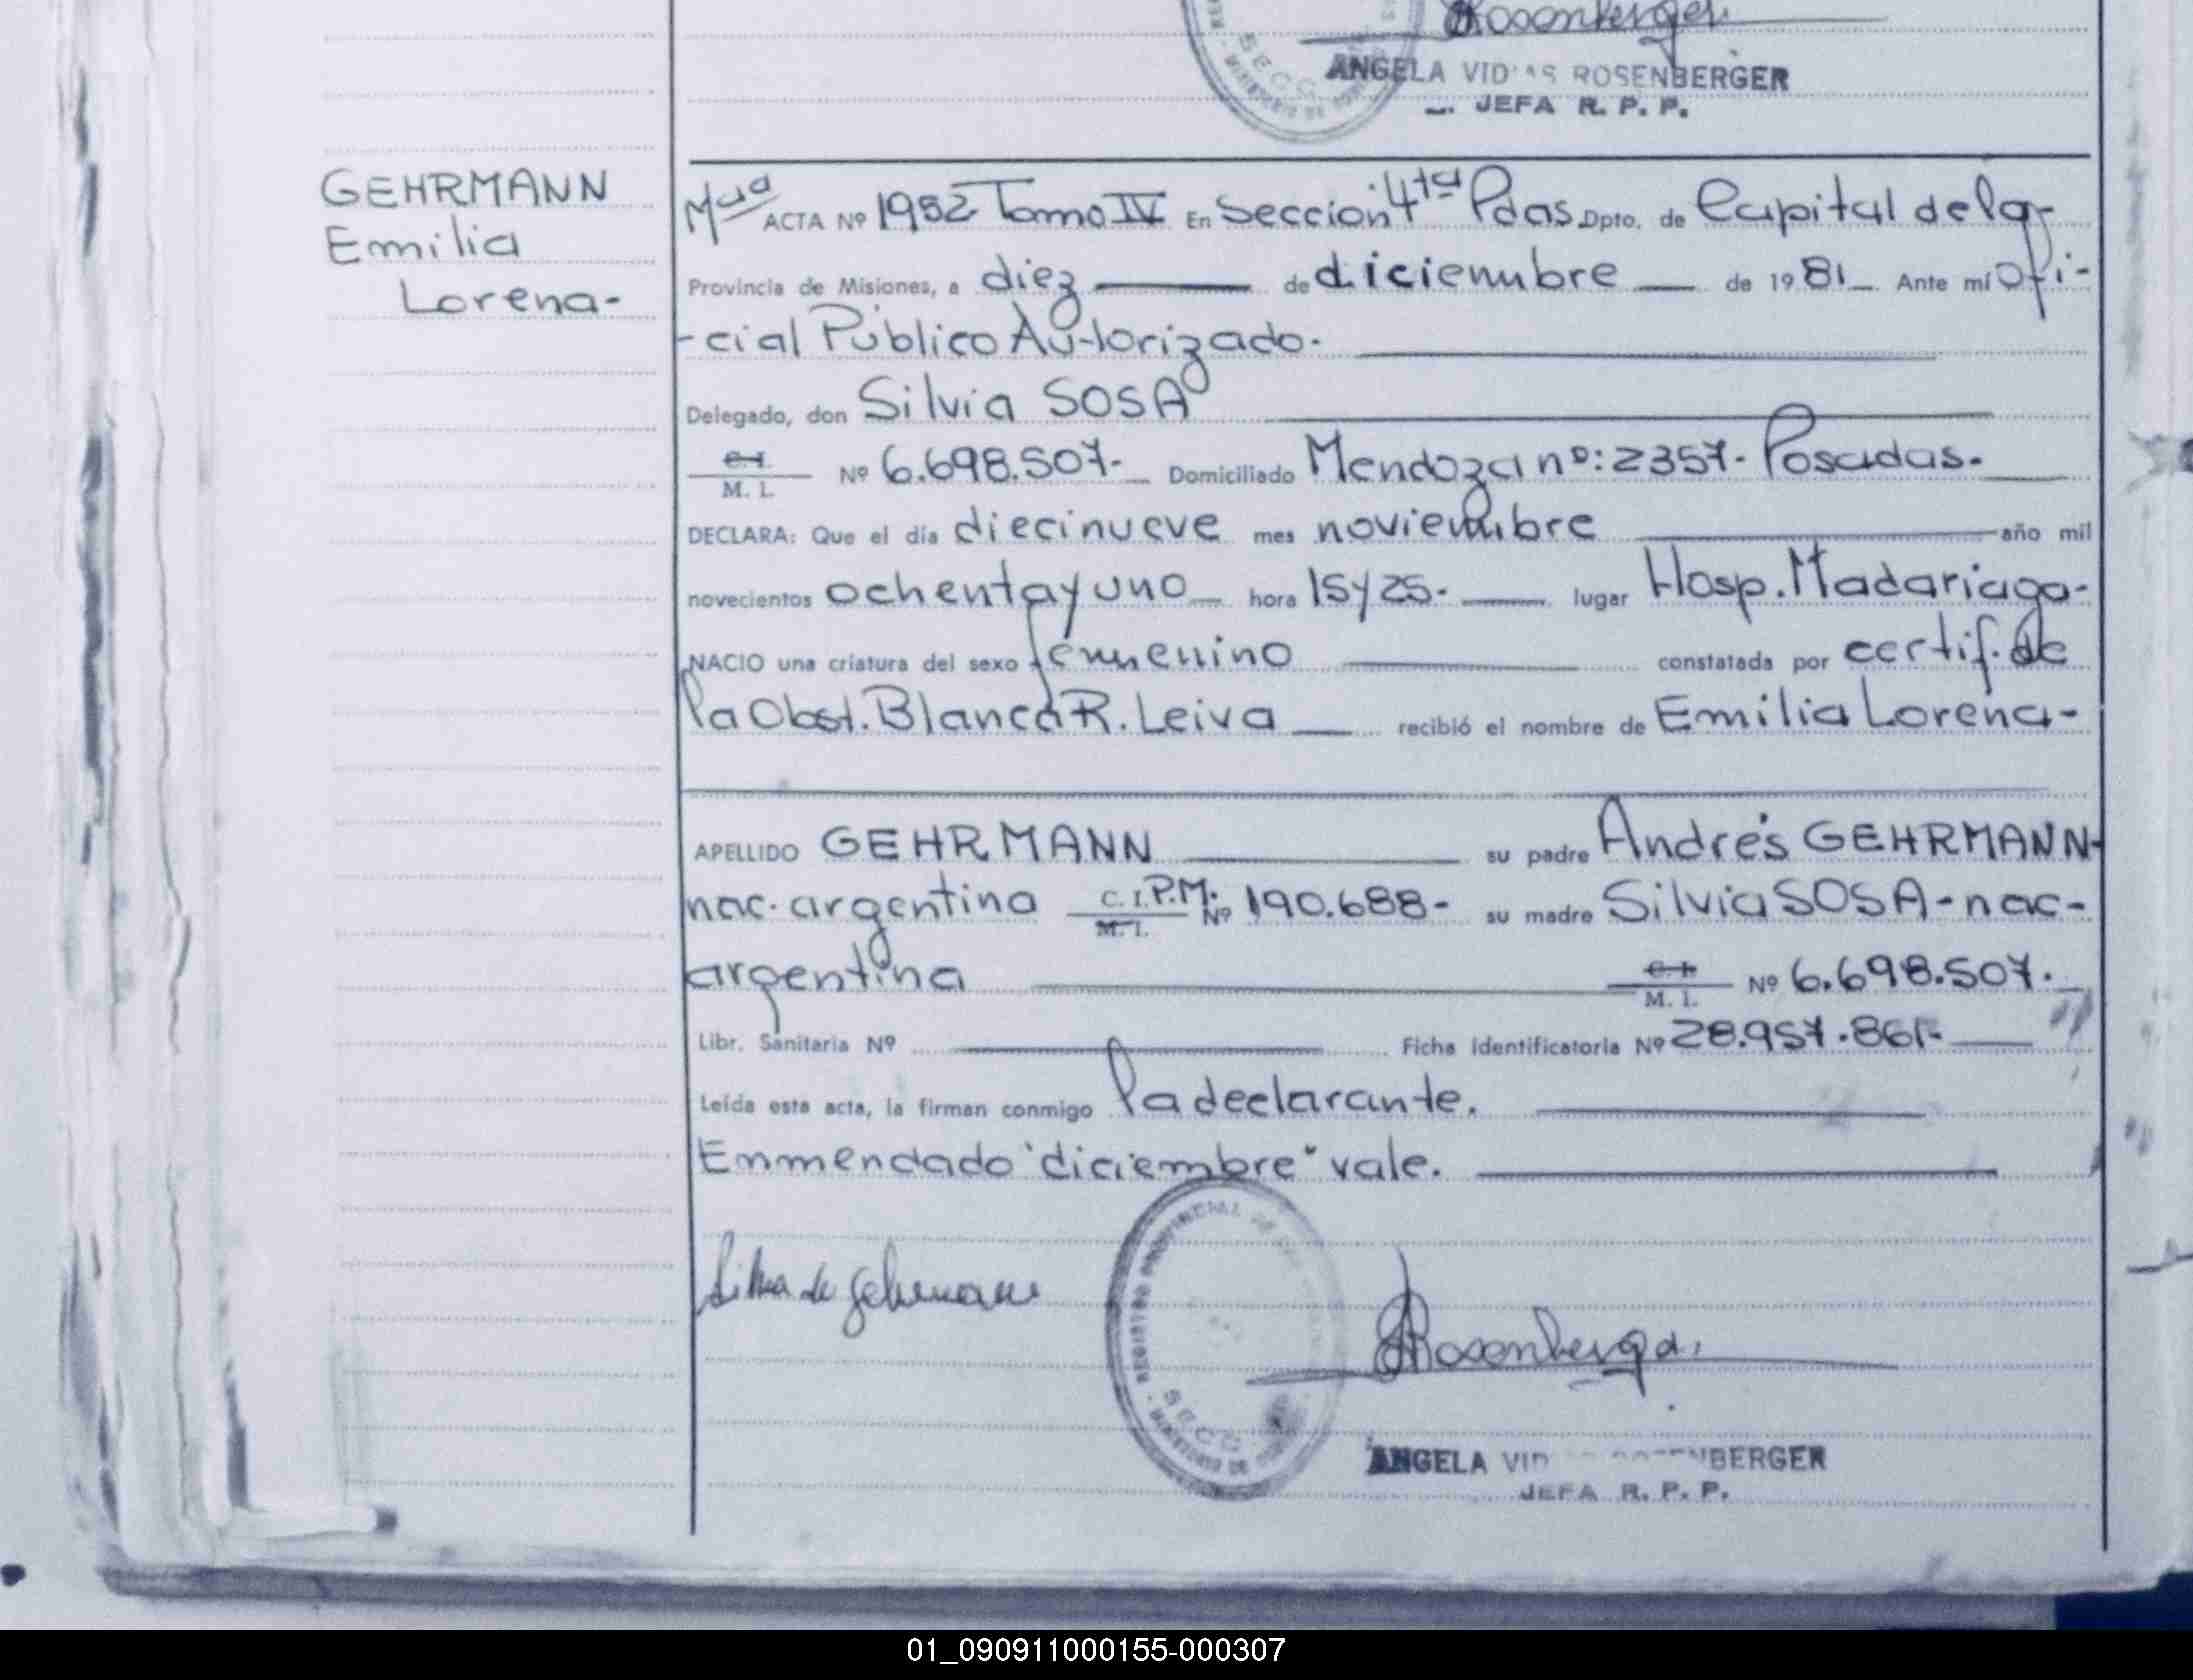 Rosenberger
ANGELA VID AS ROSENBERGER
JEFA R. P. P.
GEHRMANN
Emilia
Lorena-
ACTA Nº 1952 Tomo IV En Sección 4ta Pdas. Dpto. de Capital de la
Provincia de Misiones, a diez de diciembre de 1981 Ante mí Ofi-
-cial Público Autorizado.
Delegado, don Silvia SOSA
C. I.
M. I. Nº 6.698.507.- Domiciliado Mendoza nº: 2357- Posadas.
DECLARA: Que el día diecinueve mes noviembre año mil
novecientos ochenta y uno hora 15 y 25.- lugar Hosp. Madariaga-
NACIO una criatura del sexo femenino constatada por certif. de
la Obst. Blanca R. Leiva recibió el nombre de Emilia Lorena-
APELLIDO GEHRMANN su padre Andrés GEHRMANN-
nac. argentina C. I. P.M. Nº 190.688- su madre Silvia SOSA- nac-
M. I.
argentina C. I.
M. I. Nº 6.698.507.
Libr. Sanitaria Nº Ficha Identificatoria Nº 28.957.861-
Leída esta acta, la firman conmigo la declarante.
Enmendado "diciembre" vale.
Silvia de Gehrmann
REGISTRO PROVINCIAL DE
SECC
MINISTERIO DE
Rosenberger
ANGELA VID BERGER
JEFA R. P. P.
01_090911000155-000307